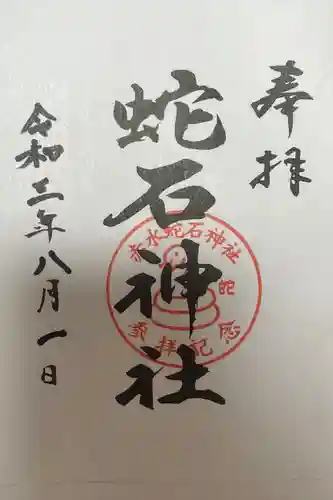 奉拝
蛇石神社
赤水蛇石神社
参拝記念
令和三年八月一日